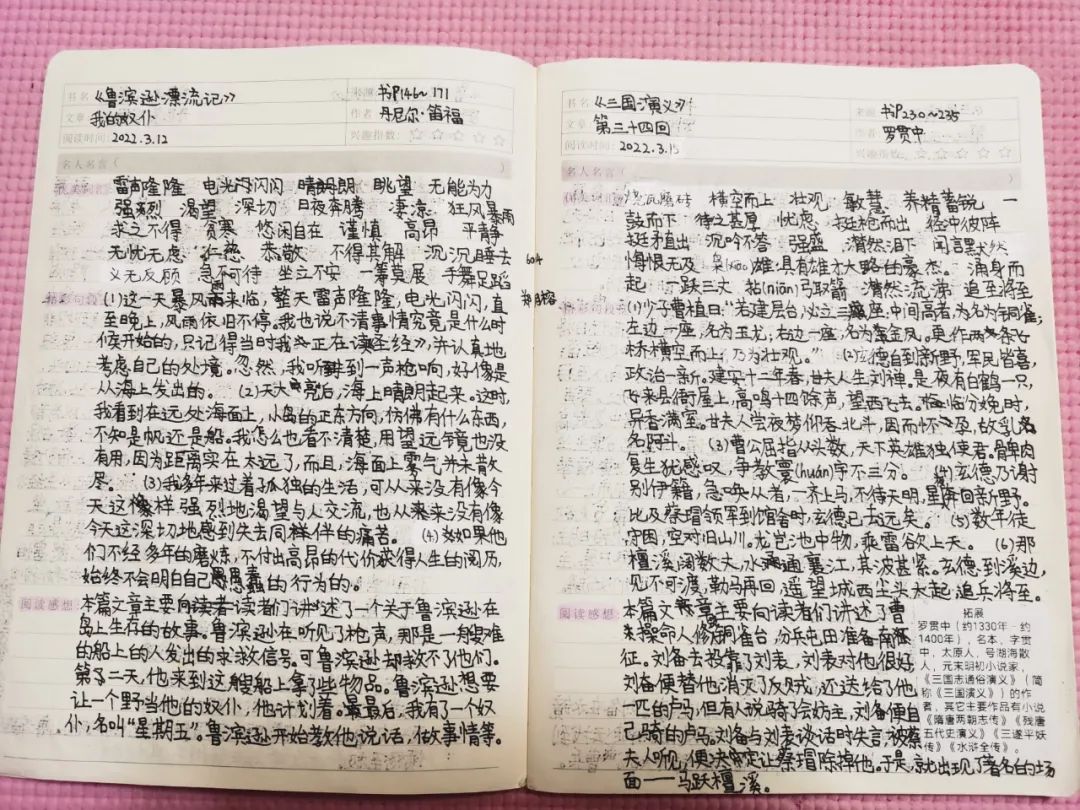 书名 《鲁滨逊漂流记》 来源 书P146~171
文章 我的奴仆 作者 丹尼尔·笛福
阅读时间: 2022.3.12 兴趣指数: ☆☆☆☆☆
名人名言(
雷声隆隆 电光闪闪 晴朗朗 眺望 无能为力
强烈 渴望 深切 日夜奔腾 凄凉 狂风暴雨
求之不得 贫寒 悠闲自在 谨慎 高昂 平静
无忧无虑 仁慈 恭敬 不得其解 沉沉睡去
义无反顾 急不可待 坐立不安 一筹莫展 手舞足蹈
(1)这一天暴风雨来临,整天雷声隆隆,电光闪闪,直
至晚上,风雨依旧不停。我也说不清事情究竟是什么时
候开始的,只记得当时我正在读圣经》,并认真地
考虑自己的处境。忽然,我听到一声枪响,好像是
从海上发出的。 (2)天大亮后,海上晴朗起来。这时,
我看到在远处海面上,小岛的正东方向,仿佛有什么东西,
不知是帆还是船。我怎么也看不清楚,用望远镜也没
有用,因为距离实在太远了,而且,海面上雾气并未散
尽。 (3)我多年来过着孤独的生活,可从来没有像今
天这样强烈地渴望与人交流,也从来没有像
今天这深切地感到失去同伴的痛苦。 (4)如果他
们不经多年的磨炼,不付出高昂的代价获得人生的阅历,
始终不会明白自己愚蠢的行为的。
阅读感想: 本篇文章主要向读者们讲述了一个关于鲁滨逊在
岛上生存的故事。鲁滨逊在听见了枪声,那是一艘难
的船上的人发出的求救信号。可鲁滨逊却救不了他们。
第二天,他来到这艘船上拿了些物品。鲁滨逊想要
让一个野当他的奴仆,他计划着。最后,我有了一个奴
仆,名叫“星期五”。鲁滨逊开始教他说话,做事情等。
书名 《三国演义》 来源 书P230~235
文章 第三十四回 作者 罗贯中
阅读时间: 2022.3.15 兴趣指数: ☆☆☆☆☆
名人名言(
烧瓦磨砖 横空而上 壮观 敏慧 养精蓄锐 一
鼓而下 待之甚厚 忧虑 挺枪而出 径冲彼阵
挺矛直出 沉吟不答 强盛 潸然泪下 闻言默然
悔恨无及 枭(xiāo)雄:具有雄才大略的豪杰。 涌身而
起 一跃三丈 拈(niān)弓取箭 潸然流涕 追至将至
(1)少子曹植曰:“若建层台,必立三座:中间高者,名为铜雀;
左边一座,名为玉龙,右边一座,名为金凤。更作两条飞
桥,横空而上,乃为壮观。” (2)玄德自到新野,军民皆喜,
政治一新。建安十二年春,甘夫人生刘禅。是夜有白鹤一只,
飞来县衙屋上,高鸣四十余声,望西飞去。临分娩时,
异香满室。甘夫人尝夜梦仰吞北斗,因而怀孕,故乳名
名阿斗。 (3)曹公屈指从头数,天下英雄独使君。髀肉
复生犹感叹,争教寰(huán)宇不三分。 (4)玄德乃谢
别伊籍,急唤从者,一齐上马,不待天明,星夜回新野。
比及蔡瑁领军到馆舍时,玄德已去远矣。 (5)数年徒
守困,空对旧山川。龙岂池中物,乘雷欲上天。 (6)那
檀溪阔数丈,水通襄江,其波甚紧。玄德到溪边,
见不可渡,勒马再回,遥望城西尘头大起,追兵将至。
阅读感想: 本篇文章主要向读者们讲述了曹
操命人修铜雀台,分兵屯田准备南
征。刘备去投靠了刘表,刘表对他很好,
刘备便替他消灭了反贼,还送给了他
一匹的卢马,但有人说骑了会妨主,刘备便自
己骑的卢马。刘备与刘表谈话时失言,被蔡
夫人听见,便决定让蔡瑁除掉他。于是,就出现了著名的场
面——马跃檀溪。
拓展
罗贯中(约1330年-约
1400年),名本,字贯
中,太原人,号湖海散
人,元末明初小说家,
《三国志通俗演义》(简
称《三国演义》)的作
者,其它主要作品有小说
《隋唐两朝志传》《残唐
五代史演义》《三遂平妖
传》《水浒全传》。